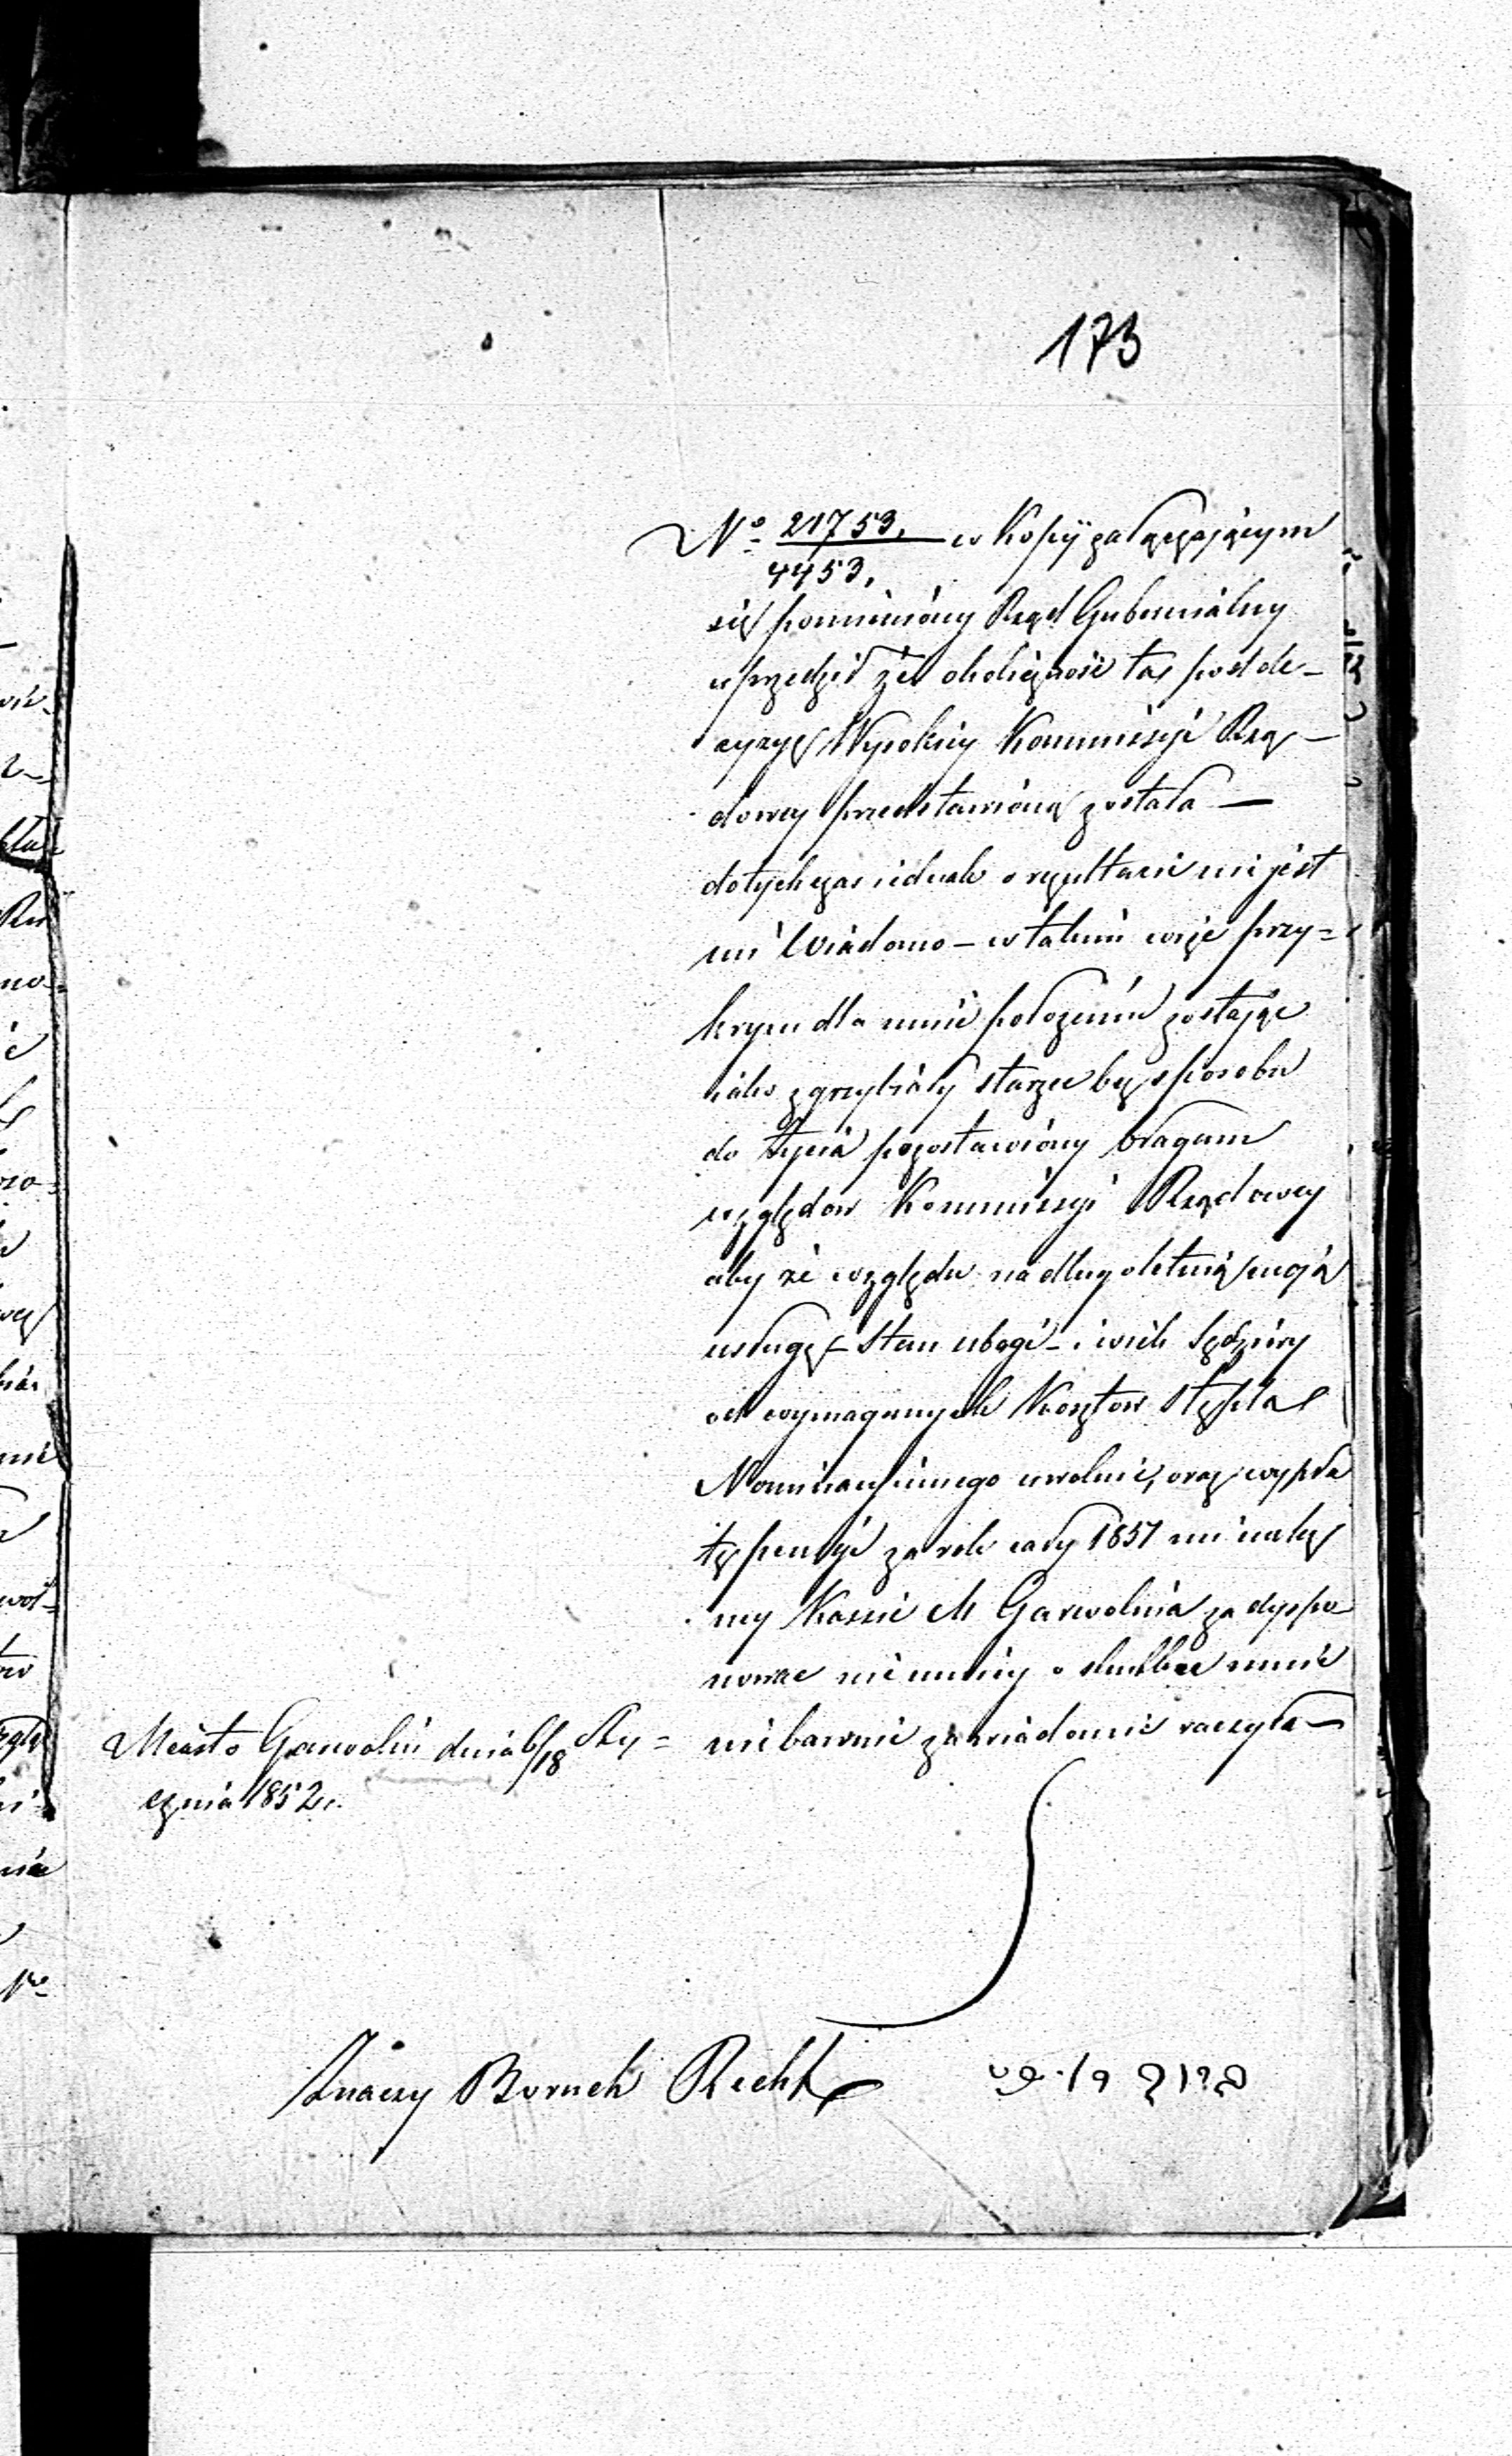 173
No 21753. w Kopÿ załączającym
4453.
się pomieniony Rząd Gubernialny
uprzedził że okoliczność ta pod de-
cyzyę Wysokiey Kommissyi Rzą-
dowey przedstawioną została —
dotychczas iednak o rezultacie nie jest
mi Wiadomo — w takim więc przy=
krym dla mnie położeniu zostając
iako zgrzybiały starzec bez sposobu
do życia pozostawiony błagam
względów Kommissyi Rządowey
aby ze względu na długoletnią moją
usługę — stan ubogi — i wiek sędziwy
od wymaganych Kosztów stępla
Nominacyinego uwolnić, oraz wypła
tę pensyi za rok cały 1851 mi należ
ney Kassie M Garwolina zadyspo
nować niemniey o skutku mnie
niebawnie zawiadomić raczyła —
Miasto Garwolin dnia 6/18 Sty=
cznia 1852 r.
Znaczy Boruch Recht
ברוך